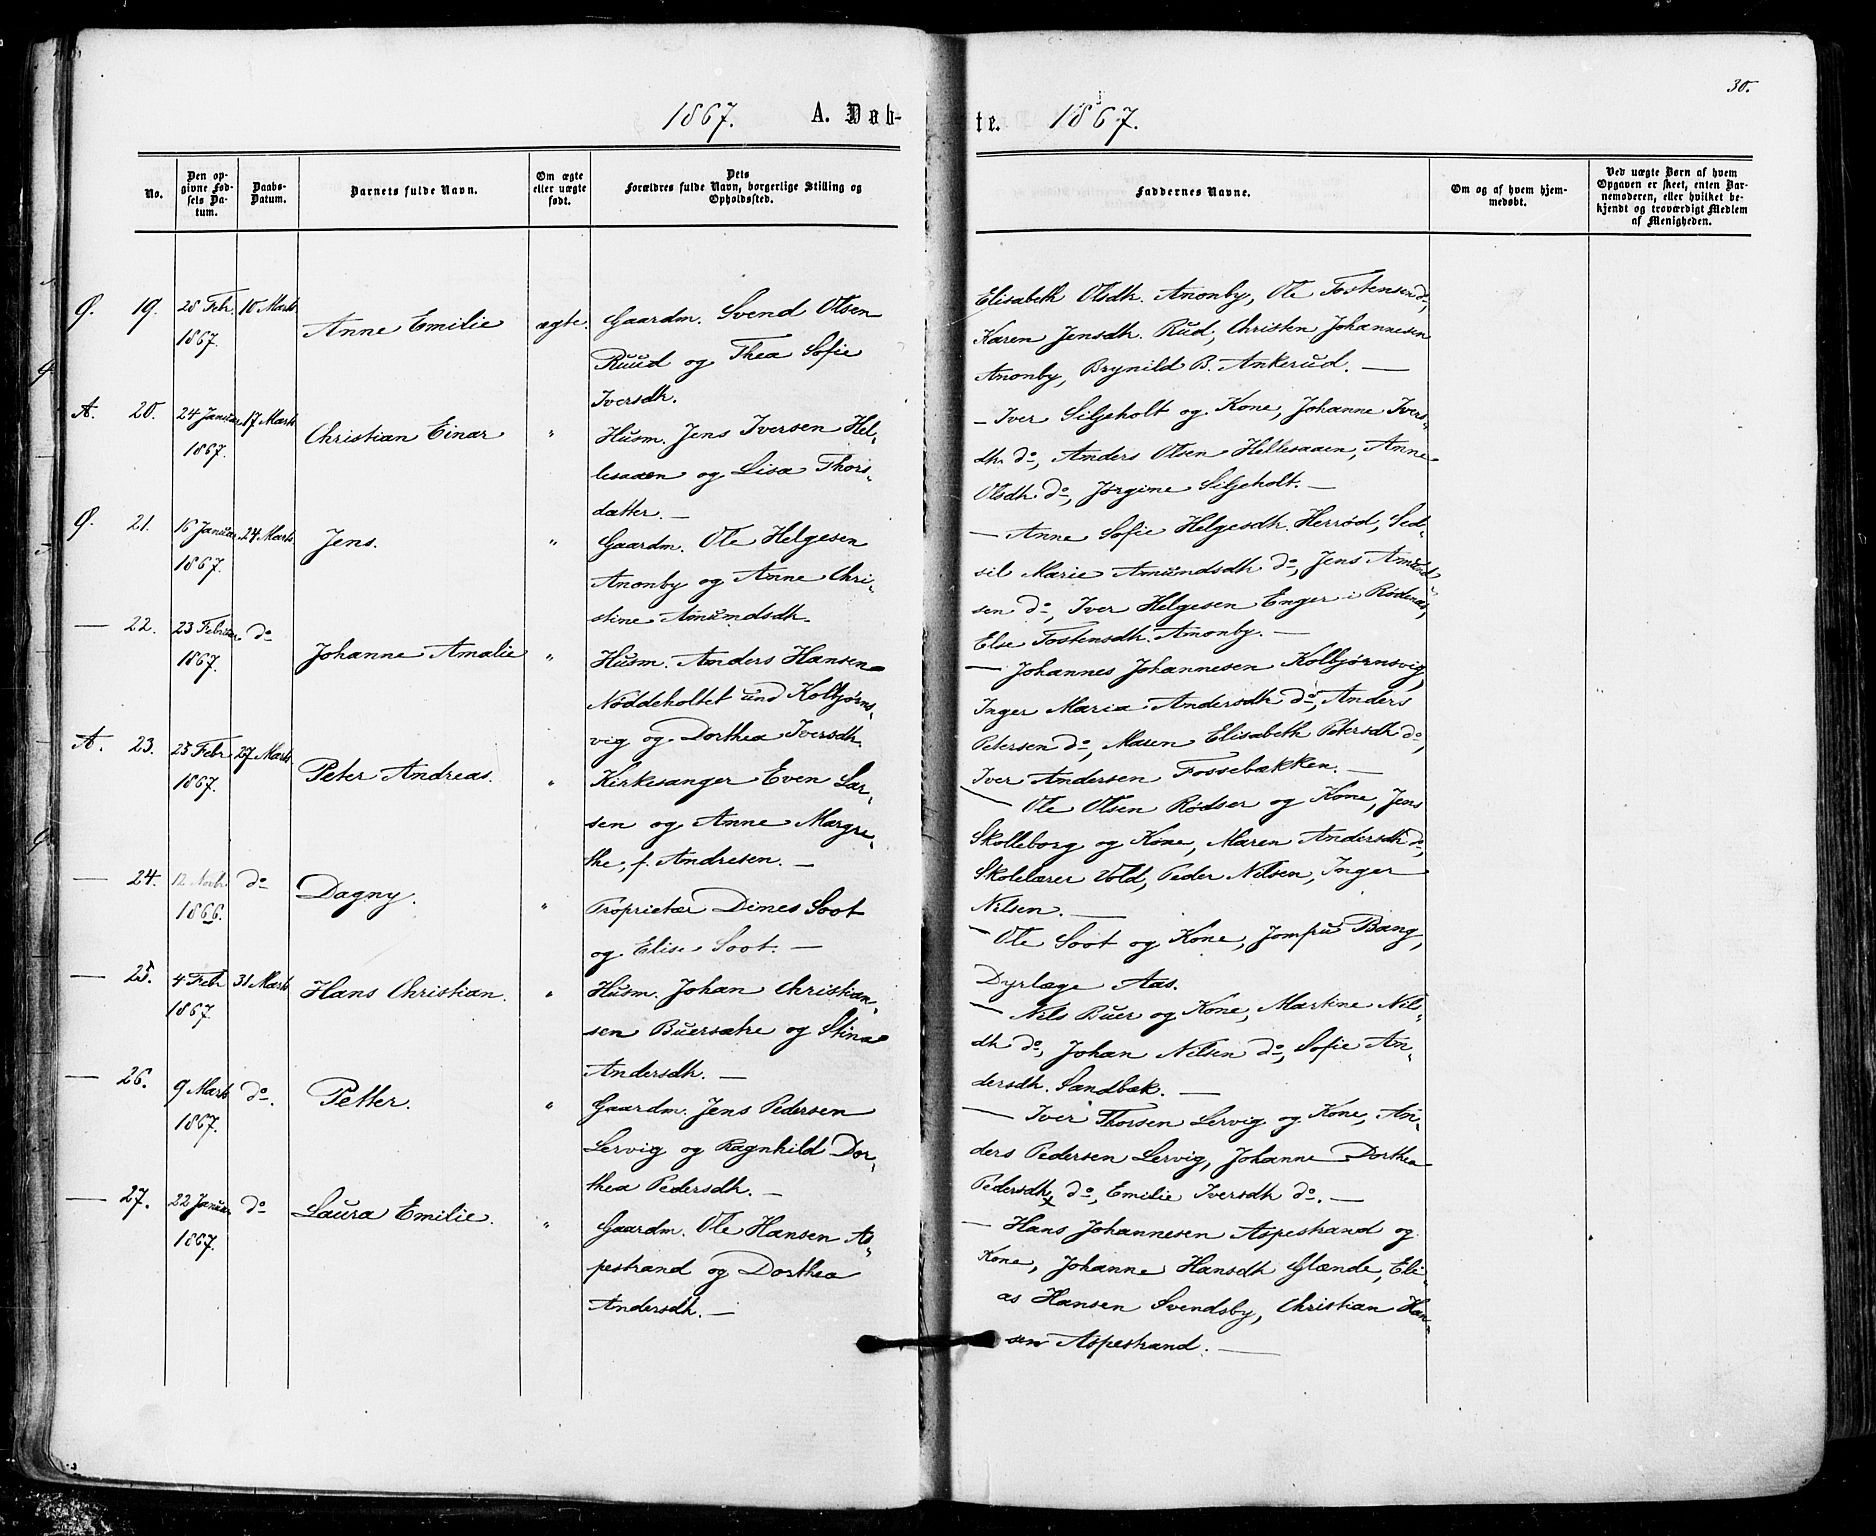 30.
1867. A. Døb-
te. 1867.
No.
Den op-
givne Fød-
sels Da-
tum.
Daabs-
Datum.
Barnets fulde Navn.
Om ægte
eller uægte
født.
Dets
Forældres fulde Navn, borgerlige Stilling og
Opholdssted.
Faddernes Navne.
Om og af hvem hjem-
medøbt.
Ved uægte Børn af hvem
Opgaven er skeet, enten Bar-
nemoderen, eller hvilket be-
kjendt og troværdigt Medlem
af Menigheden.
Ø. 19. 28 Febr 10 Marts
1867.
Anne Emilie ægte.
Gaardm. Svend Olsen
Ruud og Thea Sofie
Iversdh.
Elisabeth Olsdh. Anonby, Ole Tostensen do,
Karen Jensdh. Rud, Christen Johannesen
Anonby, Brynild B. Ankerud. —
A. 20. 24 Januar 17 Marts
1867.
Christian Einar "
Husm. Jens Iversen Hel-
lesaaen og Lisa Thors-
datter. —
— Iver Siljeholt og Kone, Johanne Ivers-
dh. do, Anders Olsen Hellesaaen, Anne
Olsdh do, Jørgine Siljeholt. —
Ø. 21. 16 Januar 24 Marts
1867.
Jens. "
Gaardm. Ole Helgesen
Anonby og Anne Chri-
stine Amundsdh.
— Anne Sofie Helgesdh. Herrød, Sed-
sil Marie Amundsdh do, Jens Amund-
sen do, Iver Helgesen Enger i Rødenæs,
Else Tostensdh. Anonby. —
— 22. 23 Februar do
1867.
Johanne Amalie "
Husm. Anders Hansen
Nøddeholtet und Kolbjørns-
vig og Dorthea Iversdh.
— Johannes Johannesen Kolbjørnsvig,
Inger Maria Andersdh do, Anders
Petersen do, Maren Elisabeth Petersdh do,
Iver Andersen Fossebækken. —
A. 23. 25 Febr 27 Marts
1867.
Peter Andreas. "
Kirkesanger Even Lar-
sen og Anne Margre-
the, f. Andresen. —
— Ole Olsen Rødser og Kone, Jens
Skolleborg og Kone, Maren Andersdh do,
Skolelærer Vold, Peder Nilsen, Inger
Nilsen. —
— 24. 12 Novbr do
1866.
Dagny. "
Proprietær Dines Soot
og Elise Soot. —
— Ole Soot og Kone, Jomfru Bang,
Dyrlæge Aas.
— 25. 4 Febr 31 Marts
1867.
Hans Christian. "
Husm. Johan Christian-
sen Buersætre og Stina
Andersdh. —
— Nils Buer og Kone, Martine Nils-
dh do, Johan Nilsen do, Sofie An-
dersdh. Sandbæk. —
— 26. 9 Marts do.
1867.
Petter. "
Gaardm. Jens Pedersen
Lervig og Ragnhild Dor-
thea Pedersdh. —
— Iver Thorsen Lervig og Kone, An-
ders Pedersen Lervig, Johanne Dorthea
Pedersdh do, Emilie Iversdh do. —
— 27. 22 Januar do
1867.
Laura Emilie. "
Gaardm. Ole Hansen As-
pestrand og Dorthea
Andersdh. —
— Hans Johannesen Aspestrand og
Kone, Johanne Hansdh Glænde, Eli-
as Hansen Svendsby, Christian Han-
sen Aspestrand. —